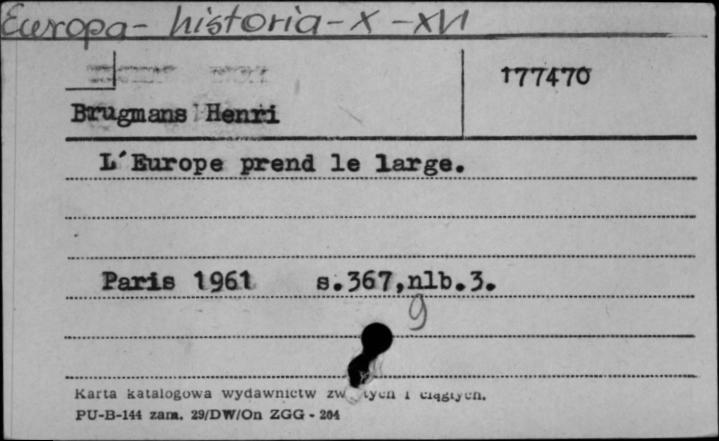 Europa - historia - X - XVI
177470
Brugmans Henri
L'Europe prend le large.
Paris 1961 s.367,nlb.3.
9
Karta katalogowa wydawnictw i ciągłych.
PU-B-144 zam. 29/DW/On ZGG - 204